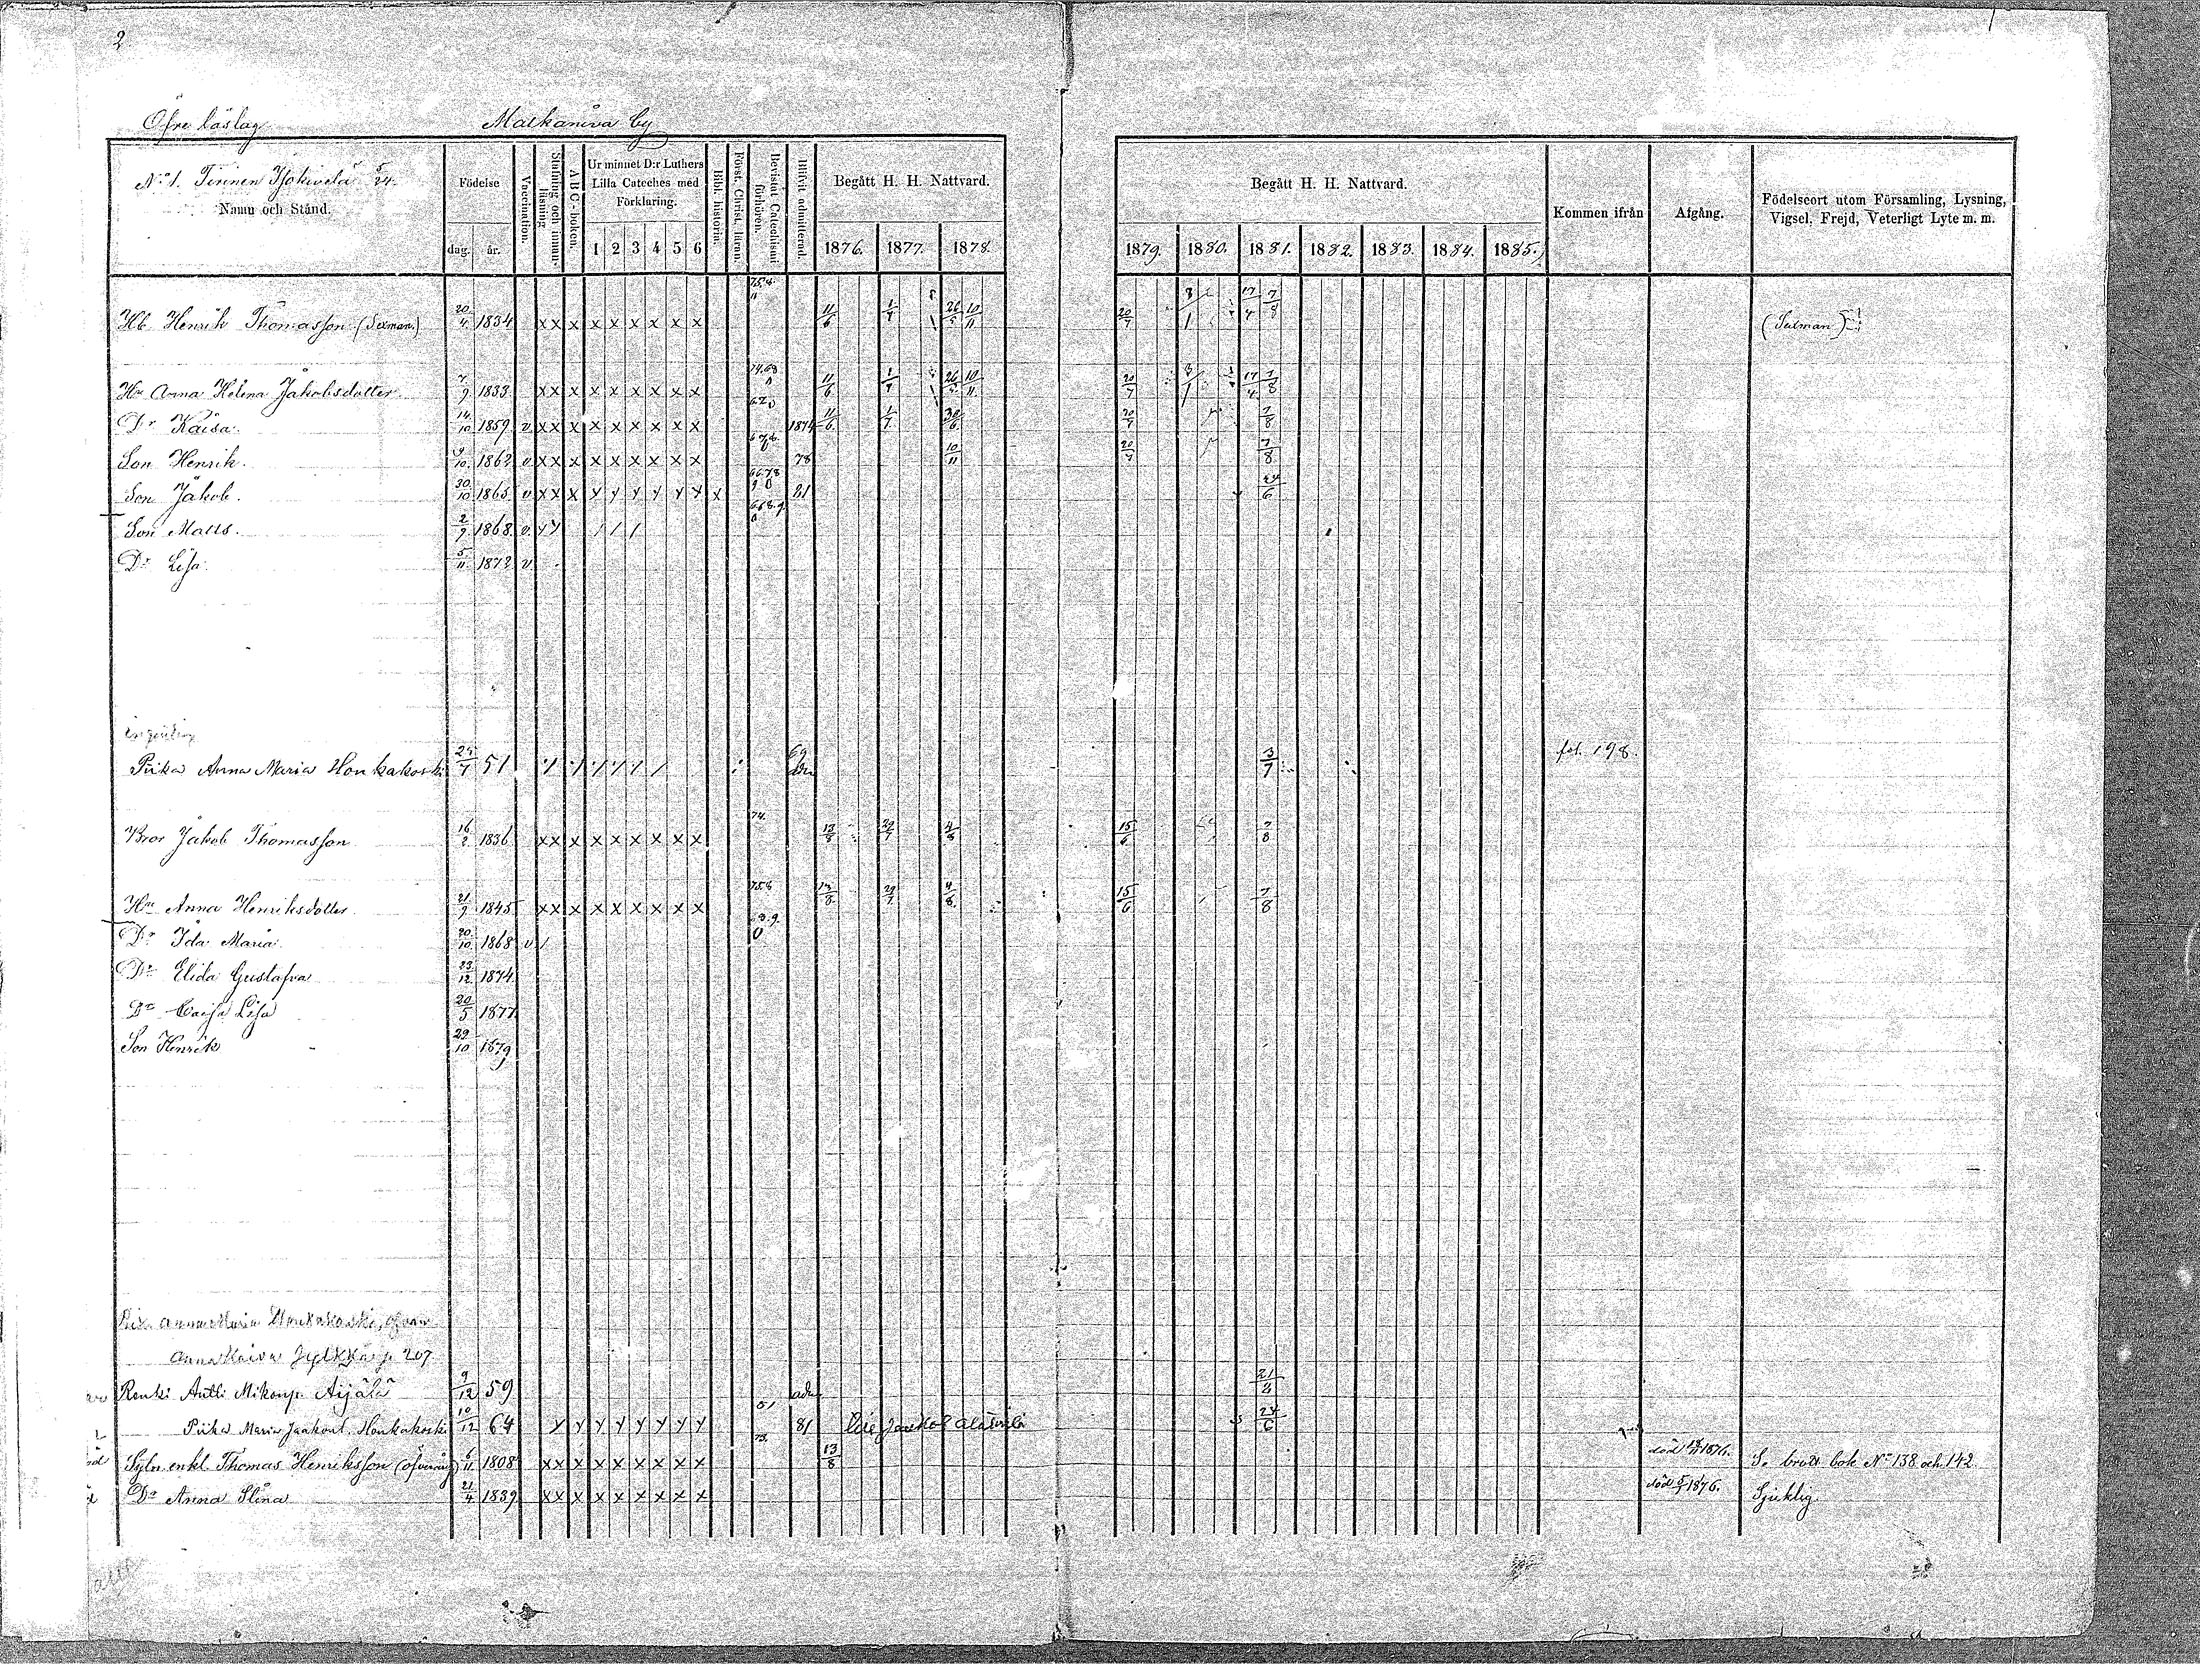 2
Öfre läslag Matkaniva by
No 1. Tirinen Isokivelä 5/24.
Namn och Stånd.
Födelse
dag. år.
Vaccination.
Slutning och innan-läsning.
A B C-boken.
Ur minnet D:r Luthers Lilla Cateches med Förklaring.
1 2 3 4 5 6
Bibl. historia.
Först. Christ. lärn.
Bevistat Catechismi förhören.
Blifvit admitterad.
Begått H. H. Nattvard.
1876. 1877. 1878.
Begått H. H. Nattvard.
1879. 1880. 1881. 1882. 1883. 1884. 1885.
Kommen ifrån
Afgång.
Födelseort utom Församling, Lysning, Vigsel, Frejd, Veterligt Lyte m. m.
Hb. Henrik Thomasson (Sexman.) 20/4 1834 x x x x x x x x x 11/6 1/7 26/5 10/11 20/7 3/1 17/4 7/8
Hu Anna Helena Jakobsdotter 7/9 1833 x x x x x x x x x 11/6 1/7 26/5 10/11 20/7 3/1 17/4 7/8
Dr Kaisa. 14/10 1859 v x x x x x x x x x 1874 11/6 1/7 30/6 20/7 7/8
Son Henrik. 9/10 1862 v x x x x x x x x x 78 10/11 20/7 7/8
Son Jakob. 30/10 1865 v x x x x y y y y y x 81 24/6
Son Matts. 2/9 1868 v y y / / /
Dr Lisa. 5/11 1873 v
Piika Anna Maria Honkakoski 51 69 3/7 fol. 198.
Bror Jakob Thomasson 16/2 1836 x x x x x x x x x 74. 13/8 29/7 4/8 15/6 7/8
Hu Anna Henriksdotter 21/9 1845 x x x x x x x x x 13/8 29/7 4/8 15/6 7/8
Dr Ida Maria. 20/10 1868 v /
Dr Elida Gustafva 23/12 1874
Dr Caisa Lisa 20/5 1877
Son Henrik 29/10 1879
Anna Maria Honkakoski,
Anna Kaisa Jylkkä p 207
Renki Antti Mikonp. Äijälä 9/12 59 adm. 21/4
Piika Maria Jaakont. Honkakoski 10/12 64 y y y y y y y y 81 24/6
Sytn. enkl. Thomas Henriksson 6/11 1808 x x x x x x x x x 13/8 död 1876. S. brott bok No 138 och 142.
Dr Anna Stina 21/4 1839 x x x x x x x x x död 1876. Sjuklig.